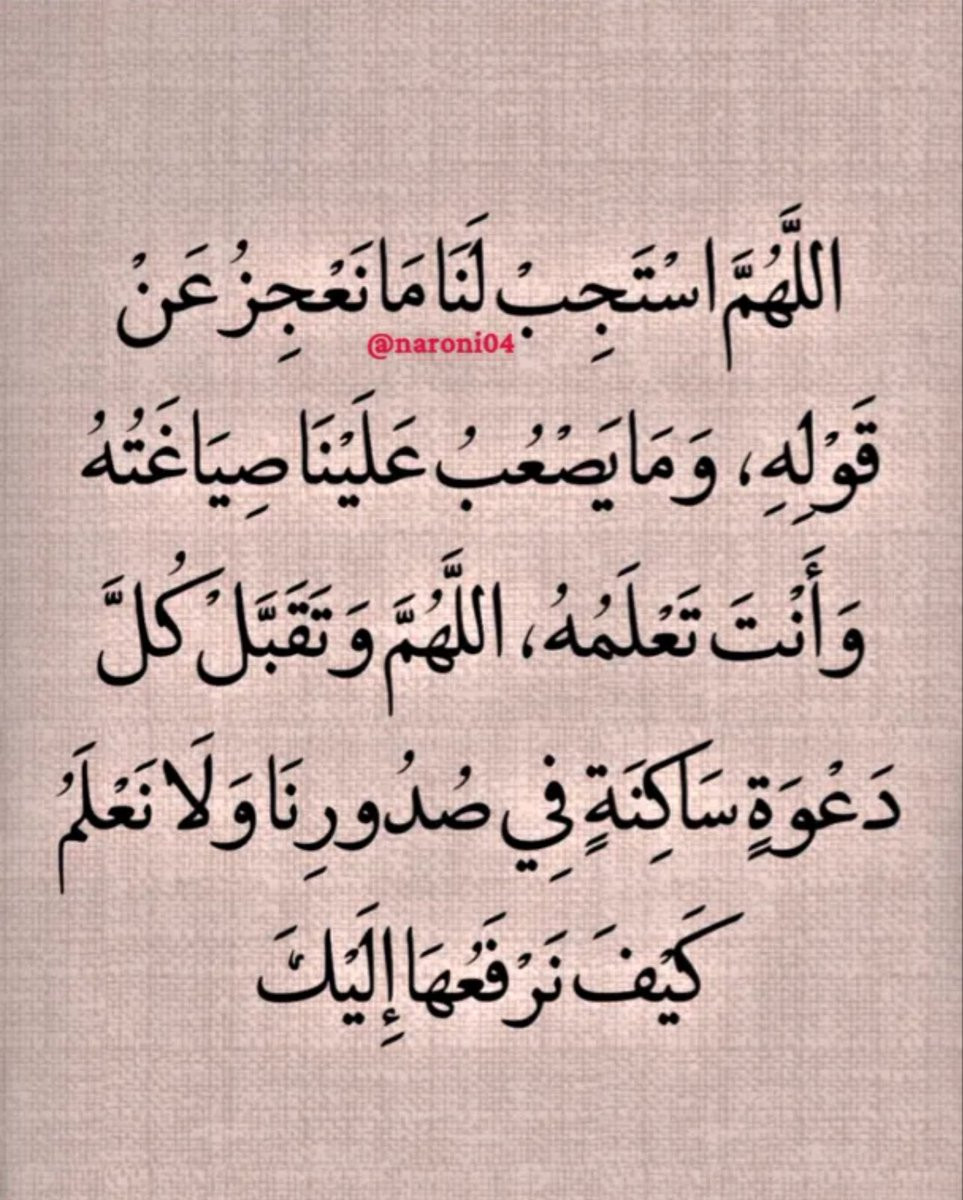 اللَّهُمَّ اسْتَجِبْ لَنَا مَا نَعْجِزُ عَنْ
@naroni04
قَوْلِهِ، وَمَا يَصْعُبُ عَلَيْنَا صِيَاغَتُهُ
وَأَنْتَ تَعْلَمُهُ، اللَّهُمَّ وَتَقَبَّلْ كُلَّ
دَعْوَةٍ سَاكِنَةٍ فِي صُدُورِنَا وَلَا نَعْلَمُ
كَيْفَ نَرْفَعُهَا إِلَيْكَ